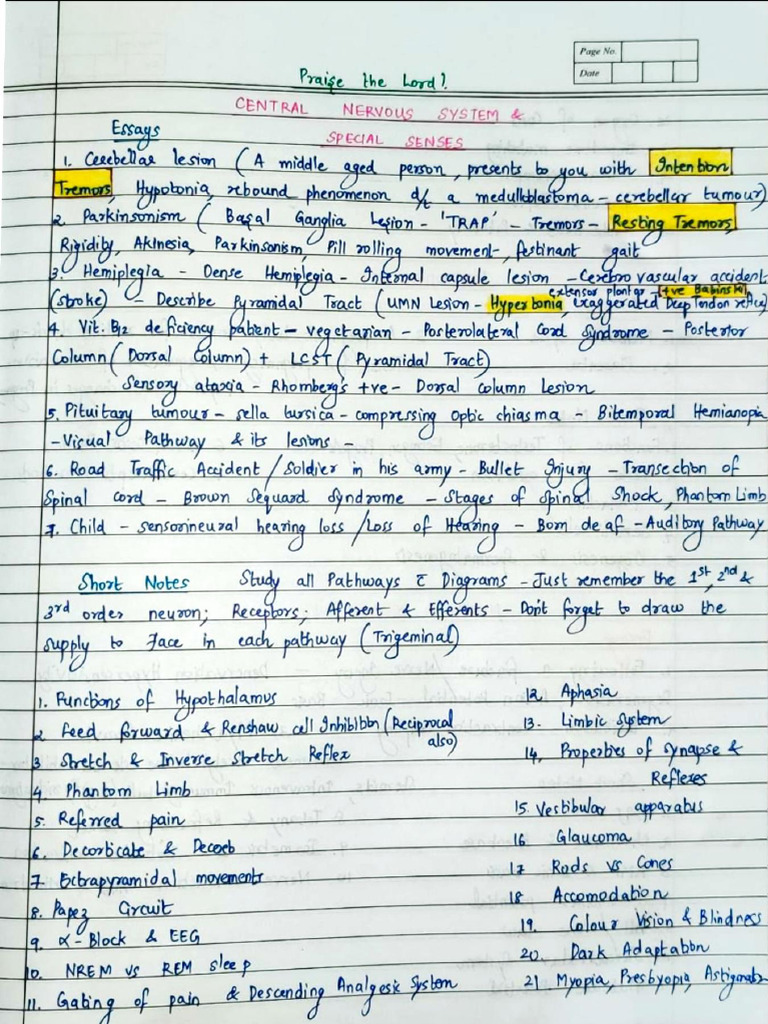 Page No.
Date
Praise the Lord!
CENTRAL NERVOUS SYSTEM &
SPECIAL SENSES
Essays
1. Cerebellar lesion ( A middle aged person, presents to you with Intention
Tremors, Hypotonia, rebound phenomenon d/t a medulloblastoma - cerebellar tumour)
2. Parkinsonism ( Basal Ganglia Lesion - 'TRAP' - Tremors - Resting Tremors,
Rigidity, Akinesia, Parkinsonism, Pill rolling movement, festinant gait
3. Hemiplegia - Dense Hemiplegia - Internal capsule lesion - Cerebro vascular accident
extensor plantar - +ve Babinski
(stroke) - Describe Pyramidal Tract ( UMN Lesion - Hypertonia, exaggerated Deep Tendon reflex)
4. Vit. B12 deficiency patient - vegetarian - Posterolateral Cord Syndrome - Posterior
Column ( Dorsal Column) + LCST ( Pyramidal Tract)
Sensory ataxia - Rhomberg's +ve - Dorsal Column Lesion
5. Pituitary tumour - sella tursica - compressing optic chiasma - Bitemporal Hemianopia
- Visual Pathway & its lesions -
6. Road Traffic Accident / Soldier in his army - Bullet Injury - Transection of
Spinal cord - Brown Sequard Syndrome - Stages of Spinal Shock, Phantom Limb
7. Child - sensorineural hearing loss / Loss of Hearing - Born deaf - Auditory Pathway
Short Notes Study all Pathways c̄ Diagrams - Just remember the 1st, 2nd &
3rd order neuron; Receptors; Afferent & Efferents - Don't forget to draw the
supply to Face in each pathway ( Trigeminal)
1. Functions of Hypothalamus
2 Feed forward & Renshaw cell Inhibition ( Reciprocal
also)
3 Stretch & Inverse Stretch Reflex
4. Phantom Limb
5. Referred pain
6. Decorticate & Decereb
7. Extrapyramidal movements
8. Papez Circuit
9. α - Block & EEG
10. NREM vs REM sleep
11. Gating of pain & Descending Analgesic System
12. Aphasia
13. Limbic System
14. Properties of Synapse &
Reflexes
15. Vestibular apparatus
16 Glaucoma
17 Rods vs Cones
18 Accomodation
19. Colour Vision & Blindness
20 Dark Adaptation
21 Myopia, Presbyopia,